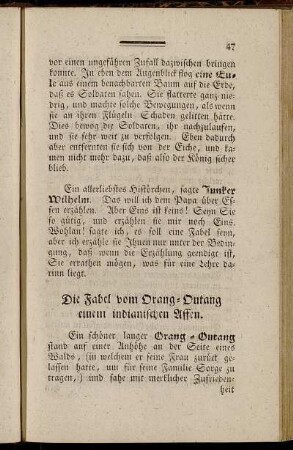 47
vor einen ungefähren Zufall dazwischen bringen
konnte. In eben dem Augenblick flog eine Eu-
le aus einem benachbarten Baum auf die Erde,
daß es Soldaten sahen. Sie flatterte ganz nie-
drig, und machte solche Bewegungen, als wenn
sie an ihren Flügeln Schaden gelitten hätte.
Dies bewog die Soldaten, ihr nachzulaufen,
und sie sehr weit zu verfolgen. Eben dadurch
aber entfernten sie sich von der Eiche, und ka-
men nicht mehr dazu, daß also der König sicher
blieb.
Ein allerliebstes Histörchen, sagte Junker
Wilhelm. Das will ich dem Papa über Es-
sen erzählen. Aber Eins ist keins! Seyn Sie
so gütig, und erzählen sie mir noch Eins.
Wohlan! sagte ich, es soll eine Fabel seyn,
aber ich erzähle sie Ihnen nur unter der Bedin-
gung, daß wenn die Erzählung geendigt ist,
Sie errathen mögen, was für eine Lehre dar-
inn liegt.
Die Fabel vom Orang-Outang
einem indianischen Affen.
Ein schöner langer Orang-Outang
stand auf einer Anhöhe an der Seite eines
Walds, (in welchem er seine Frau zurück ge-
lassen hatte, um für seine Familie Sorge zu
tragen,) und sahe mit merklicher Zufrieden-
heit